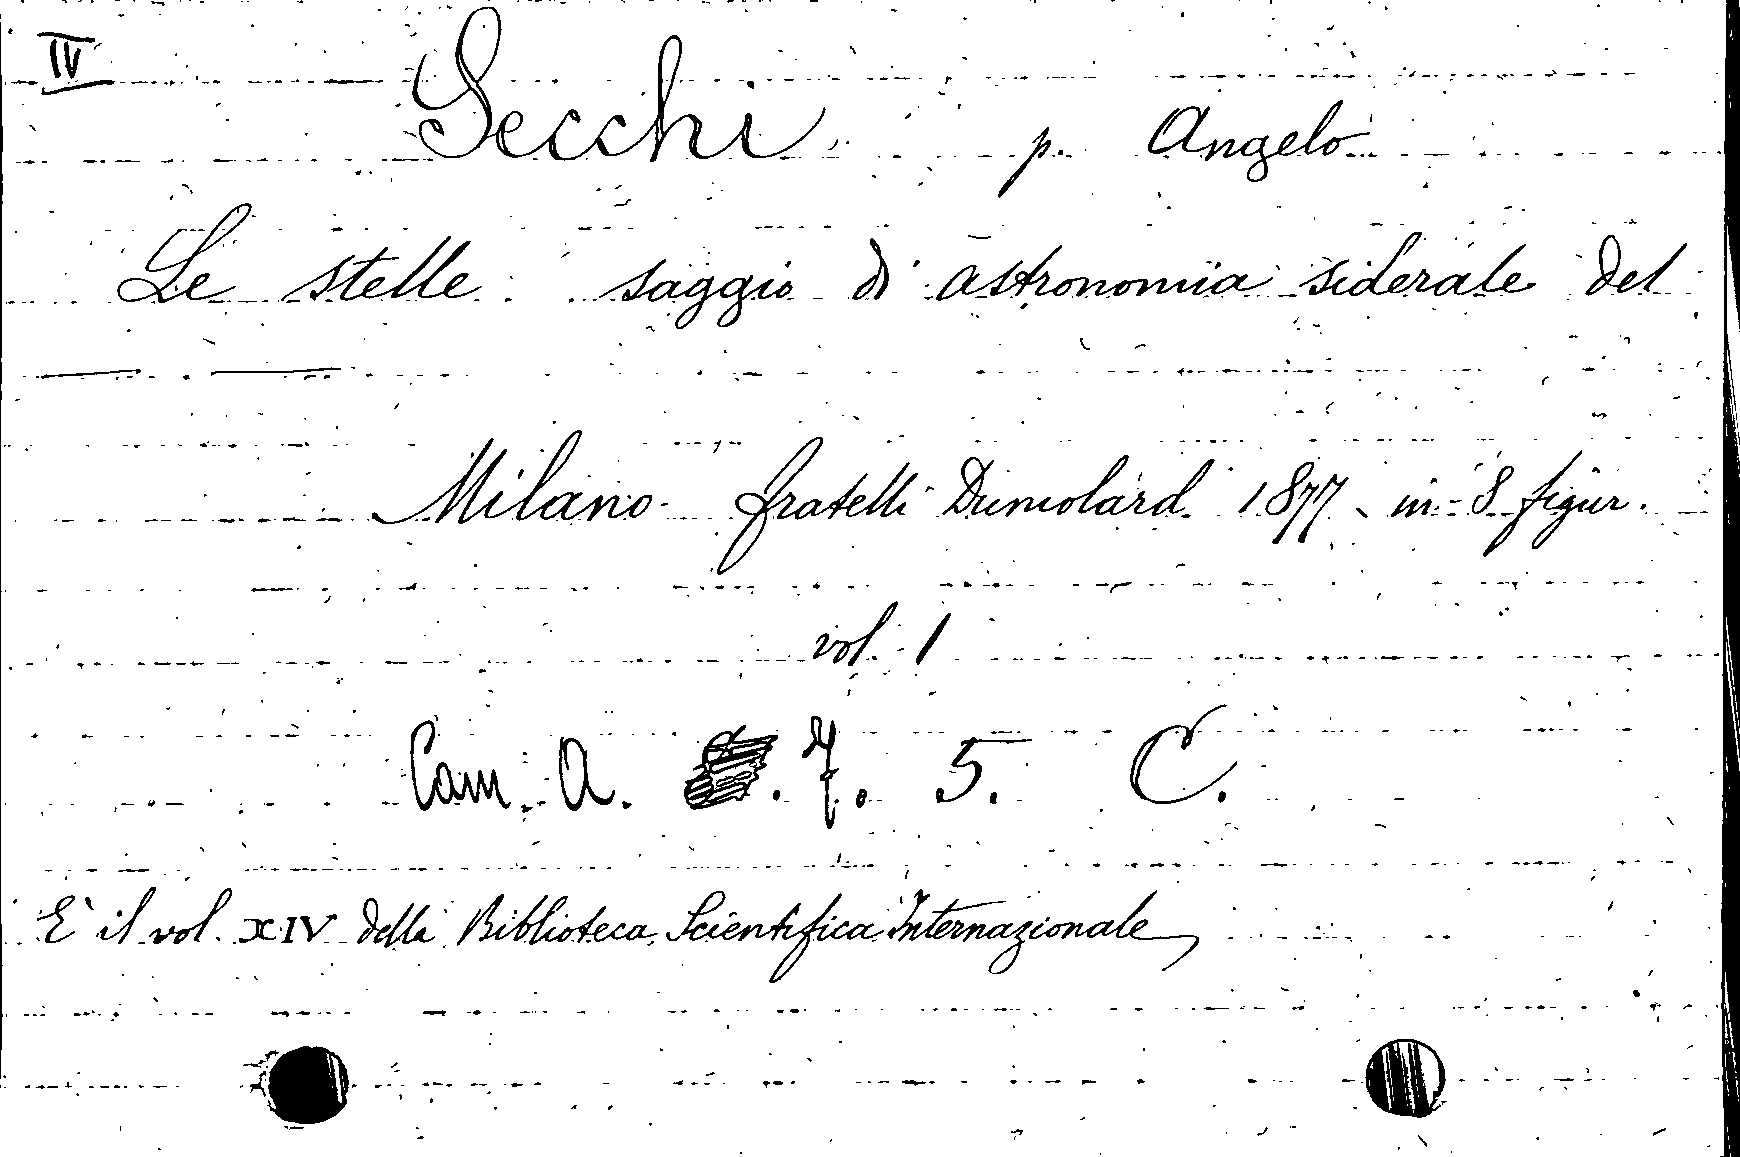 IV
Secchi p. Angelo
Le stelle saggio di astronomia siderale del
Milano fratelli Dumolard 1877 - in-8 figur.
vol. 1
Cam. A. 7. 5. C.
E' il vol. XIV della Biblioteca Scientifica Internazionale